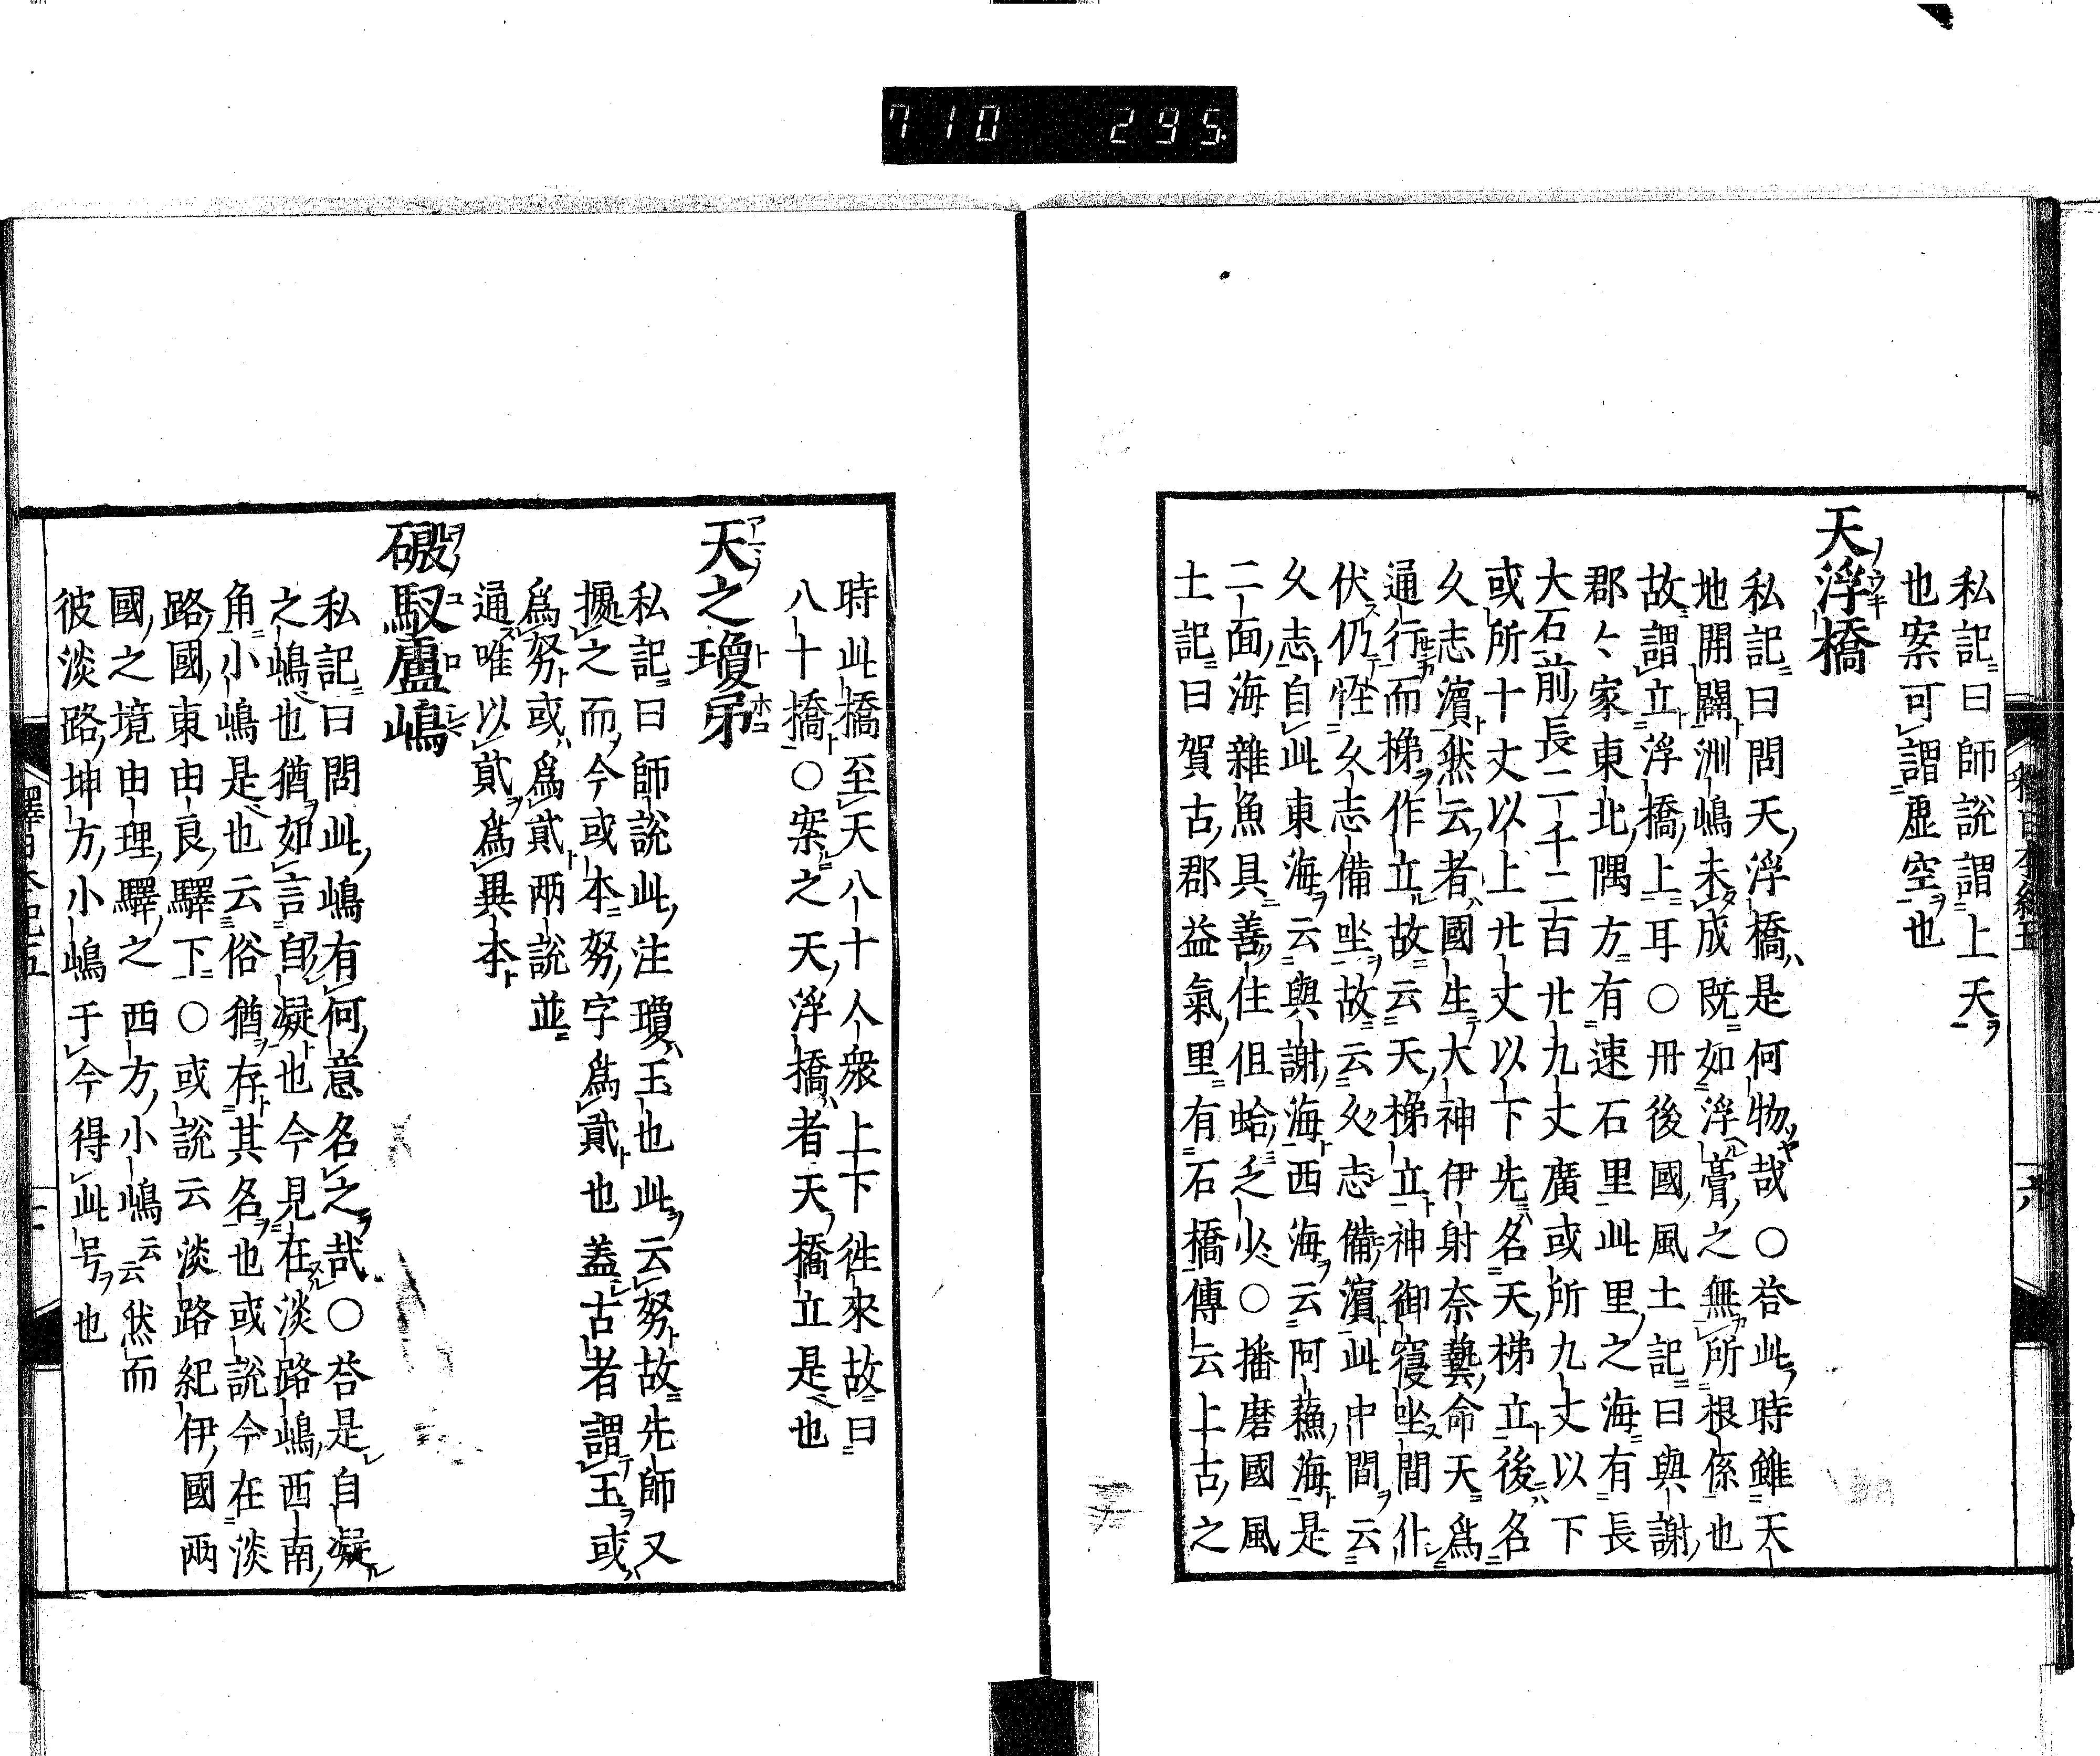 710 295
私記曰師說謂上天
也案可謂虛空也
天浮橋
私記曰問天浮橋是何物哉○荅此時雖天
地開闢洲嶋未成既如浮膏之無所根係也
故謂立浮橋上耳○丹後國風土記曰與謝
郡々家東北隅方有速石里此里之海有長
大石前長二千二百廿九丈廣或所九丈以下
或所十丈以上廿丈以下先名天梯立後名
久志濱然云者國生大神伊射奈藝命天爲
通行而梯作立故云天梯立神御寢坐間仆
伏仍恠久志備坐故云久志備濱此中間云
久志自此東海云與謝海西海云阿蘓海是
二面海雜魚具善住但蛤乏少○播磨國風
土記曰賀古郡益氣里有石橋傳云上古之
時此橋至天八十人衆上下往來故曰
八十橋○案之天浮橋者天橋立是也
天之瓊矛
私記曰師說此注瓊玉也此云努故先師又
據之而今或本努字爲貮也盖古者謂玉或
爲努或爲貮兩說並
通唯以貮爲異本
磤馭盧嶋
私記曰問此嶋有何意名之哉○荅是自凝
之嶋也猶如言自凝也今見在淡路嶋西南
角小嶋是也云俗猶存其名也或說今在淡
路國東由良驛下○或說云淡路紀伊國兩
國之境由理驛之西方小嶋云云然而
彼淡路坤方小嶋于今得此号也